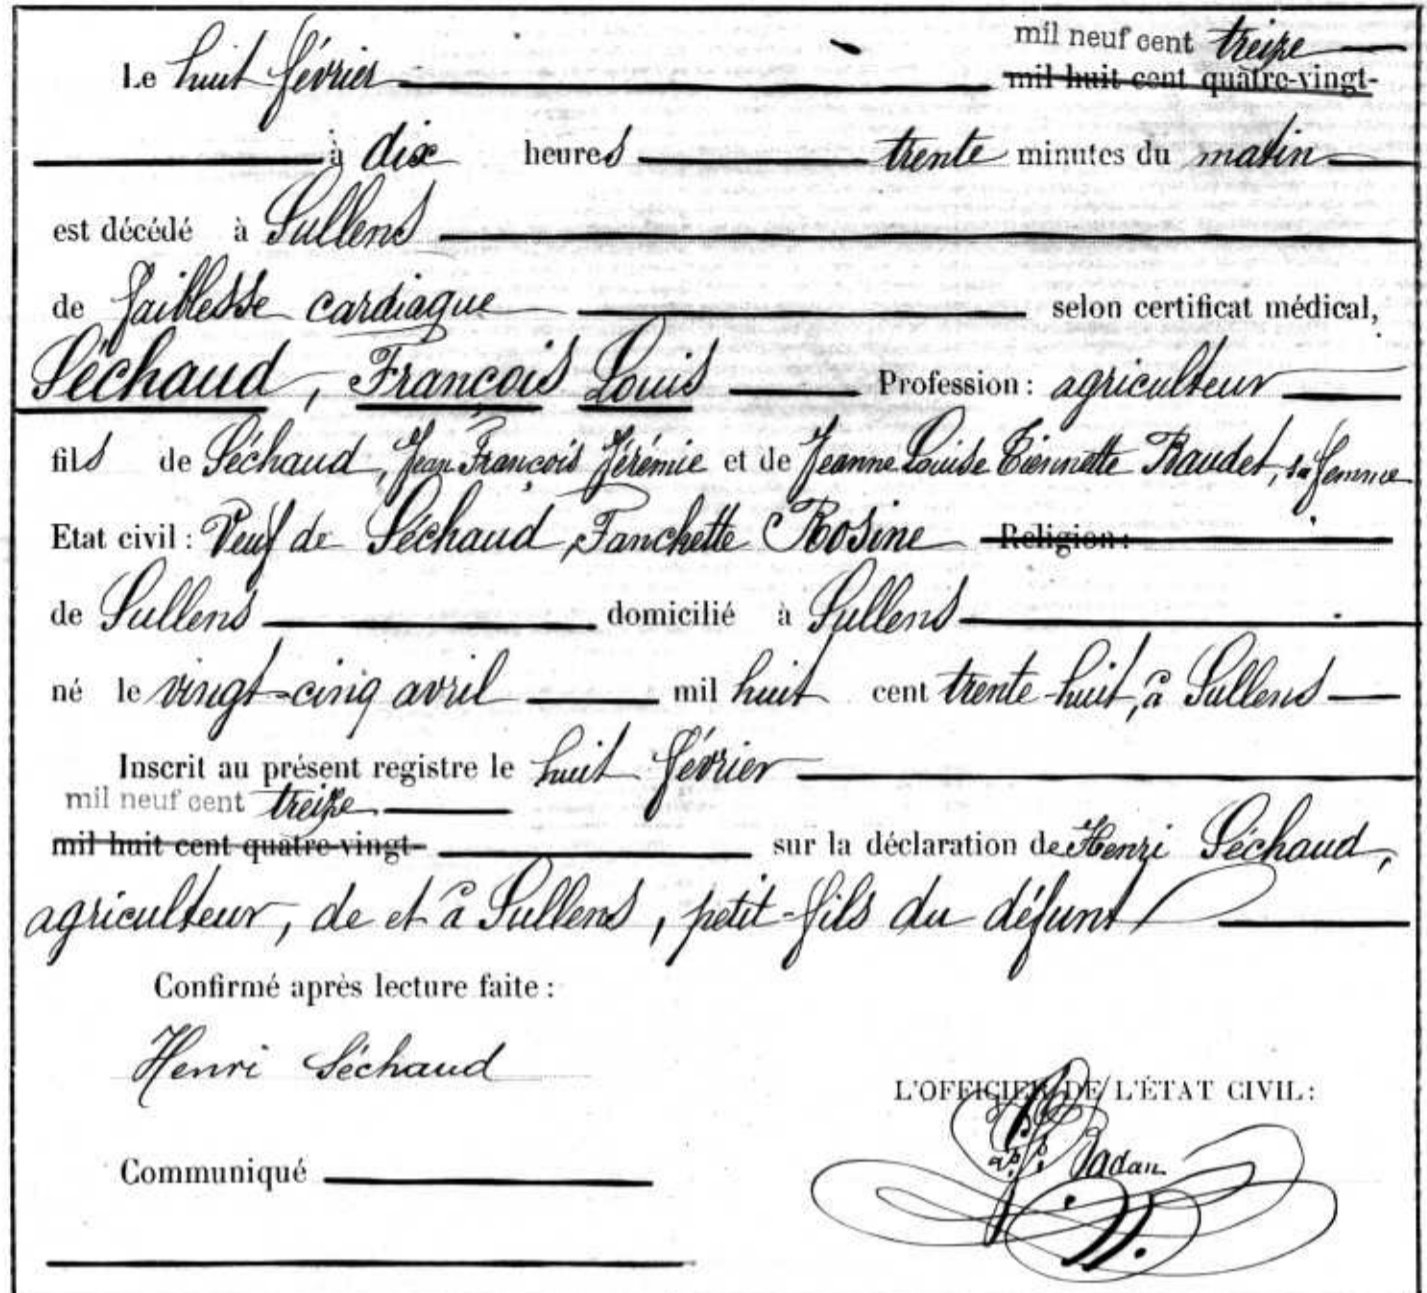 mil neuf cent treize
Le huit février mil huit cent quatre-vingt-
à dix heures trente minutes du matin
est décédé à Sullens
de faiblesse cardiaque selon certificat médical,
Séchaud, François Louis Profession : agriculteur
fils de Séchaud, Jean François Jérémie et de Jeanne Louise Etiennette Baudet, sa femme
Etat civil : Veuf de Séchaud Fanchette Rosine Religion :
de Sullens domicilié à Sullens
né le vingt-cinq avril mil huit cent trente-huit, à Sullens
Inscrit au présent registre le huit février
mil neuf cent treize
mil huit cent quatre-vingt- sur la déclaration de Henri Séchaud,
agriculteur, de et à Sullens, petit-fils du défunt
Confirmé après lecture faite :
Henri Séchaud
L'OFFICIER DE L'ÉTAT CIVIL :
Communiqué